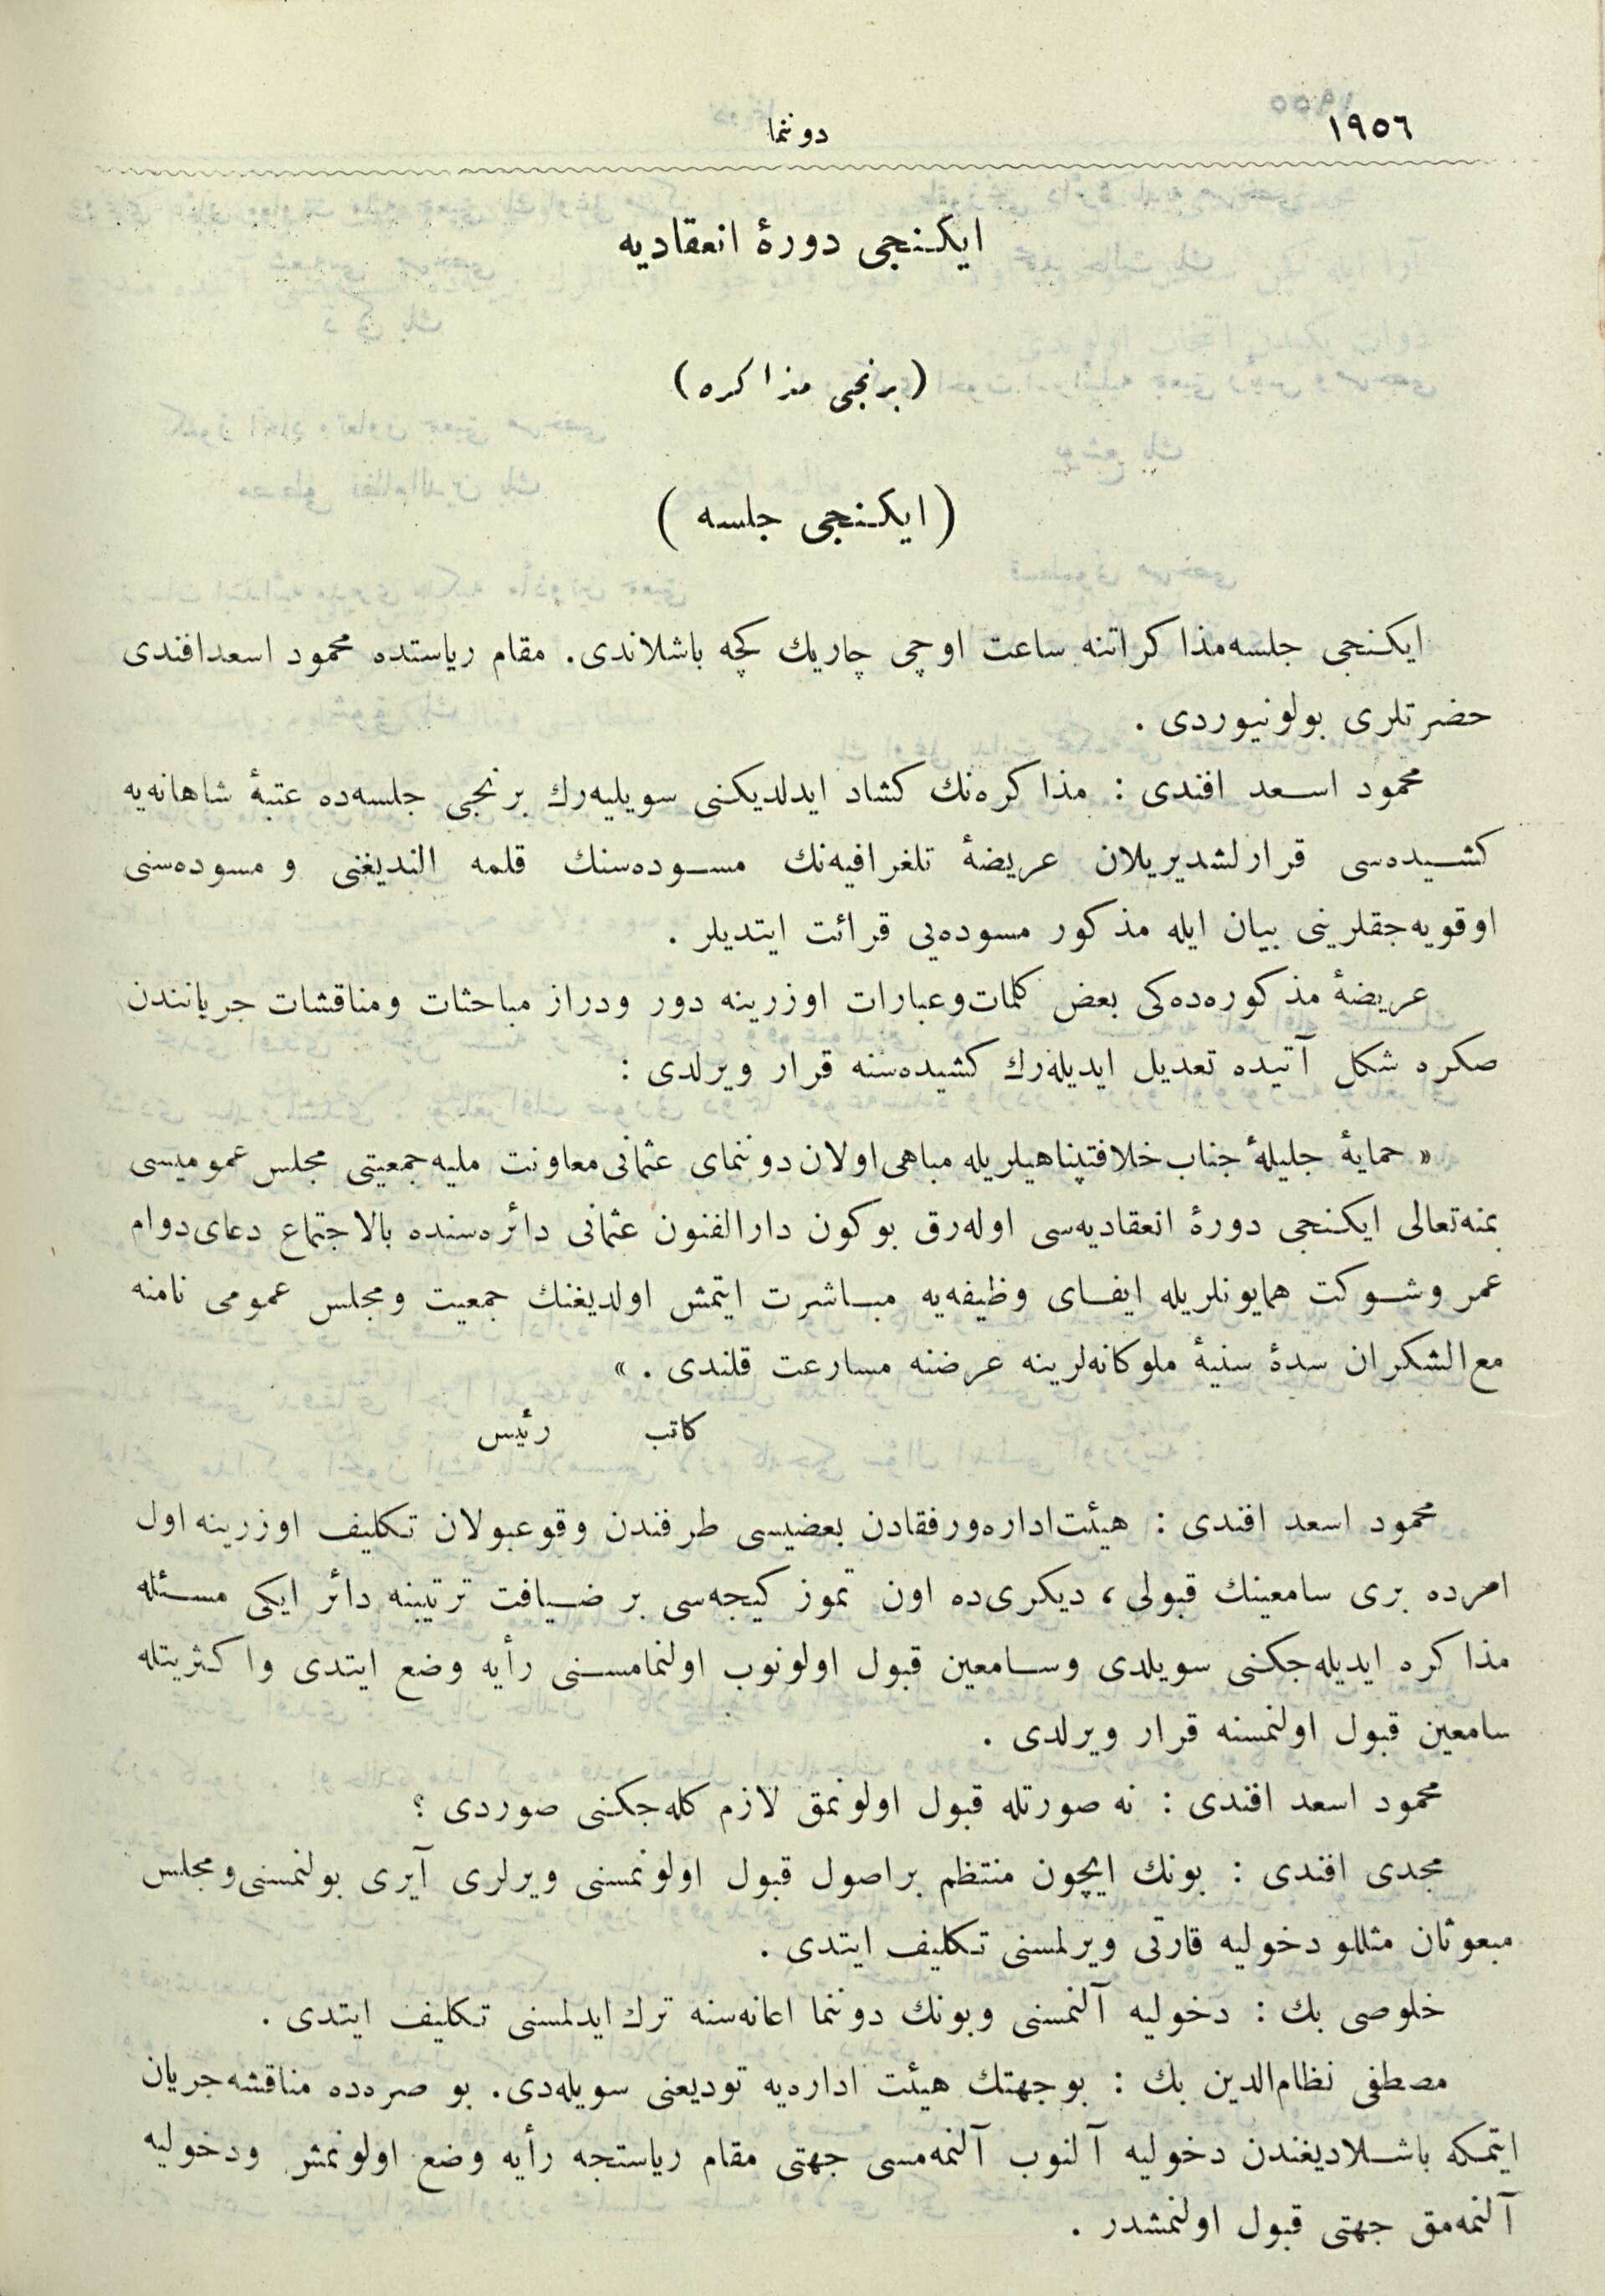 ١٩٥٦
دوننما
ايكنجى دورهٔ انعقاديه
(برنجى مذاكره)
(ايكنجى جلسه)
ايكنجى جلسه مذاكراتنه ساعت اوچى چاريك كچه باشلاندى. مقام رياستده محمود اسعد افندى
حضرتلرى بولونيوردى .
محمود اسعد افندى : مذاكره‌نك كشاد ايدلديكنى سويليه‌رك برنجى جلسه‌ده عتبهٔ شاهانه‌يه
كشيده‌سى قرارلشديريلان عريضهٔ تلغرافيه‌نك مسوده‌سنك قلمه النديغنى و مسوده‌سنى
اوقويه‌جقلرينى بيان ايله مذكور مسوده‌يى قرائت ايتديلر .
عريضهٔ مذكوره‌ده‌كى بعض كلمات وعبارات اوزرينه دور ودراز مباحثات ومناقشات جرياننذن
صكره شكل آتيده تعديل ايديله‌رك كشيده‌سنه قرار ويرلدى :
« حمايهٔ جليلهٔ جناب خلافتپناهيلريله مباهى اولان دوننماى عثمانى معاونت مليه جمعيتى مجلس عموميسى
بمنه تعالى ايكنجى دورهٔ انعقاديه‌سى اوله‌رق بوكون دارالفنون عثمانى دائره‌سنده بالاجتماع دعاى دوام
عمر وشوكت همايونلريله ايفاى وظيفه‌يه مباشرت ايتمش اولديغنك جمعيت ومجلس عمومى نامنه
مع‌الشكران سدهٔ سنيهٔ ملوكانه‌لرينه عرضنه مسارعت قلندى . »
كاتب رئيس
محمود اسعد افندى : هيئت اداره ورفقادن بعضيسى طرفندن وقوعبولان تكليف اوزرينه اول
امرده برى سامعينك قبولى، ديكرى‌ده اون تموز كيجه‌سى بر ضيافت ترتيبنه دائر ايكى مسئله
مذاكره ايديله‌جكنى سويلدى وسامعين قبول اولونوب اولنمامسنى رأيه وضع ايتدى واكثريتله
سامعين قبول اولنمسنه قرار ويرلدى .
محمود اسعد افندى : نه صورتله قبول اولونمق لازم كله‌جكنى صوردى ؟
مجدى افندى : بونك ايچون منتظم براصول قبول اولونمسنى ويرلرى آيرى بولنمسنى ومجلس
مبعوثان مثللو دخوليه قارتى ويرلمسنى تكليف ايتدى .
خلوصى بك : دخوليه آلنمسنى وبونك دوننما اعانه‌سنه ترك ايدلمسنى تكليف ايتدى .
مصطفى نظام‌الدين بك : بوجهتك هيئت اداره‌يه توديعنى سويله‌دى. بو صره‌ده مناقشه جريان
ايتمكه باشلاديغندن دخوليه آلنوب آلنمه‌مسى جهتى مقام رياستجه رأيه وضع اولونمش ودخوليه
آلنمه‌مق جهتى قبول اولنمشدر .